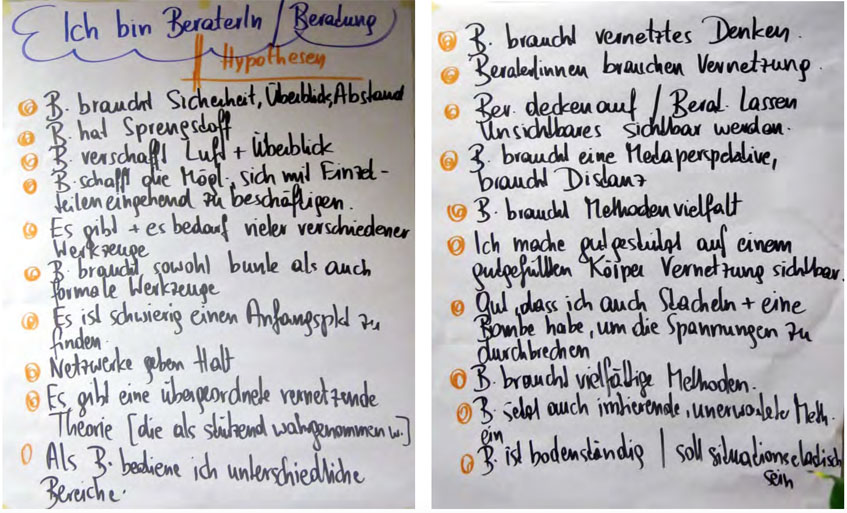 Ich bin BeraterIn / Beratung
Hypothesen
B. braucht Sicherheit, Überblick, Abstand
B. hat Sprengstoff
B. verschafft Luft + Überblick
B. schafft die Mögl., sich mit Einzel-
teilen eingehend zu beschäftigen.
Es gibt + es bedarf vieler verschiedener
Werkzeuge
B. braucht sowohl bunte als auch
formale Werkzeuge
Es ist schwierig einen Anfangspkt zu
finden.
Netzwerke geben Halt
Es gibt eine übergeordnete vernetzende
Theorie [die als stützend wahrgenommen w.]
Als B. bediene ich unterschiedliche
Bereiche.
B. braucht vernetztes Denken.
BeraterInnen brauchen Vernetzung.
Ber. decken auf / Berat. lassen
Unsichtbares sichtbar werden.
B. braucht eine Metaperspektive,
braucht Distanz
B. braucht Methodenvielfalt
Ich mache gutgestützt auf einem
gutgefüllten Körper Vernetzung sichtbar.
Gut, dass ich auch Stacheln + eine
Bombe habe, um die Spannungen zu
durchbrechen
B. braucht vielfältige Methoden.
B. setzt auch irritierende, unerwartete Meth.
ein
B. ist bodenständig / soll situationselastisch
sein